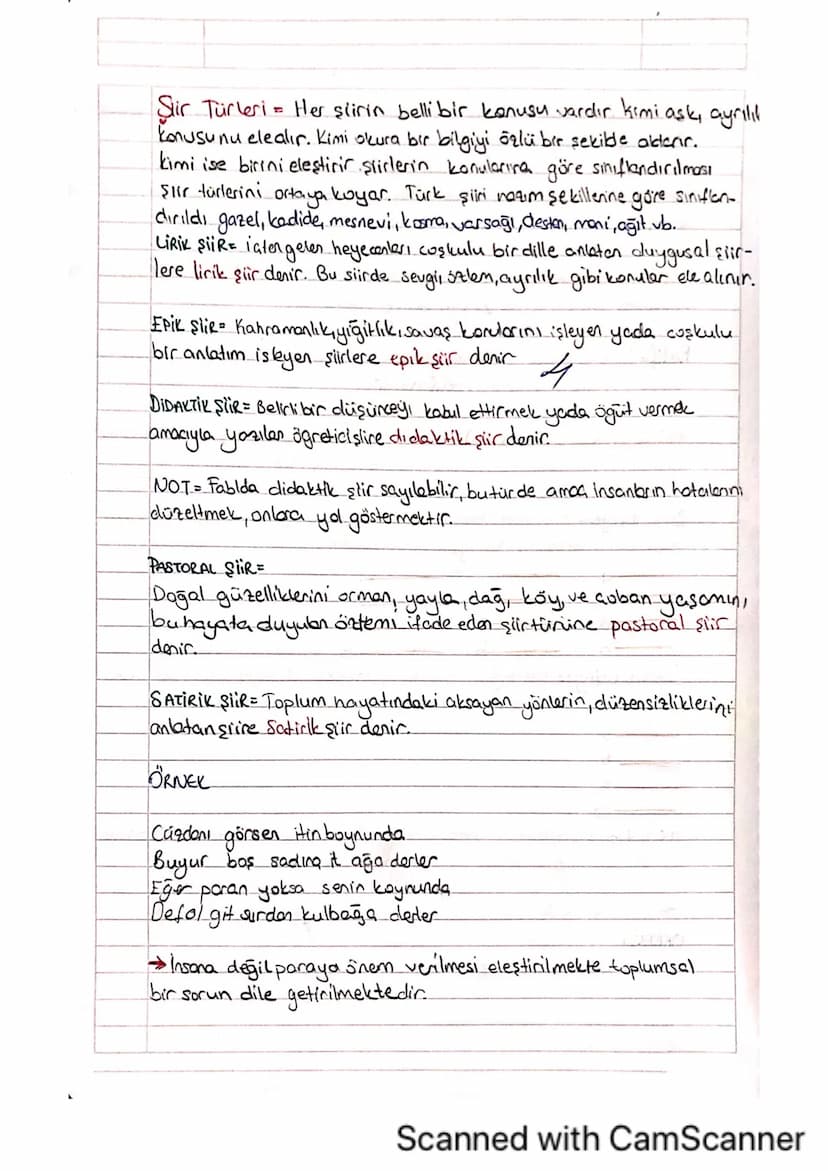 Şiir Türleri = Her şiirin belli bir konusu vardır kimi aşkı, ayrılık
konusunu ele alır. Kimi okura bir bilgiyi özlü bir şekilde aktarır.
kimi ise birini eleştirir. şiirlerin konularına göre sınıflandırılması
şiir türlerini ortaya koyar. Türk şiiri nazım şekillerine göre sınıflan-
dırıldı gazel, kadide, mesnevi, koşma, varsağı, destan, mani, ağıt vb.
LİRİK ŞİİR = içten gelen heyecanları coşkulu bir dille anlatan duygusal şiir-
lere lirik şiir denir. Bu şiirde sevgi, özlem, ayrılık gibi konular ele alınır.
EPİK ŞİİR = Kahramanlık, yiğitlik, savaş konularını işleyen yada coşkulu
bir anlatım isleyen şiirlere epik şiir denir
4
DİDAKTİK ŞİİR = Belirli bir düşünceyi kabul ettirmek yada öğüt vermek
amacıyla yazılan öğretici şiire didaktik şiir denir.
NOT = Fablda didaktik şiir sayılabilir, bu türde amaç insanların hatalarını
düzeltmek, onlara yol göstermektir.
PASTORAL ŞİİR =
Doğal güzelliklerini orman, yayla, dağ, köy, ve çoban yaşamını,
bu hayata duyulan özlemi ifade eden şiir türününe pastoral şiir
denir.
SATİRİK ŞİİR = Toplum hayatındaki aksayan yönlerin, düzensizliklerini
anlatan şiire Satirik şiir denir.
ÖRNEK
Cüzdanı görsen itin boynunda
Buyur baş sadına it ağa derler
Eğer paran yoksa senin koynunda
Defol git surdan kulbağa derler
→ İnsana değil paraya önem verilmesi eleştirilmekte toplumsal
bir sorun dile getirilmektedir.
Scanned with CamScanner